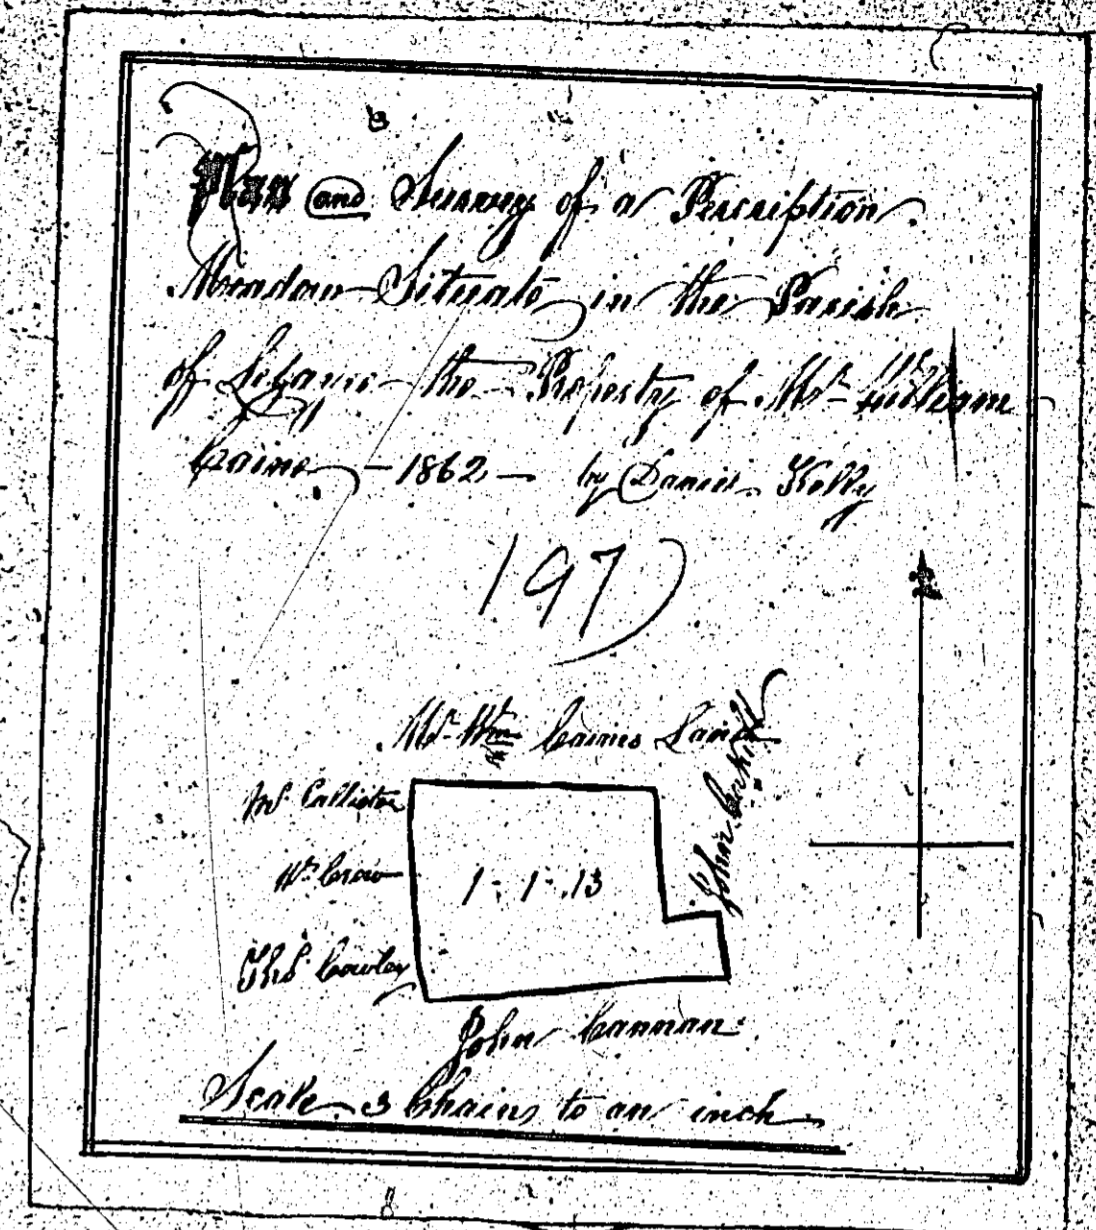 Plan and Survey of a Perscription
Meadow Situate in the Parish
of Lezayre the Property of Mr. William
Caine - 1862 - by Daniel Kelly
197
Mr. Wm. Caines Land
John
Mr. Callister
Wm. Crow
Thos. Cowley
1 - 1 - 13
John Cannan
Scale 3 Chains to an inch